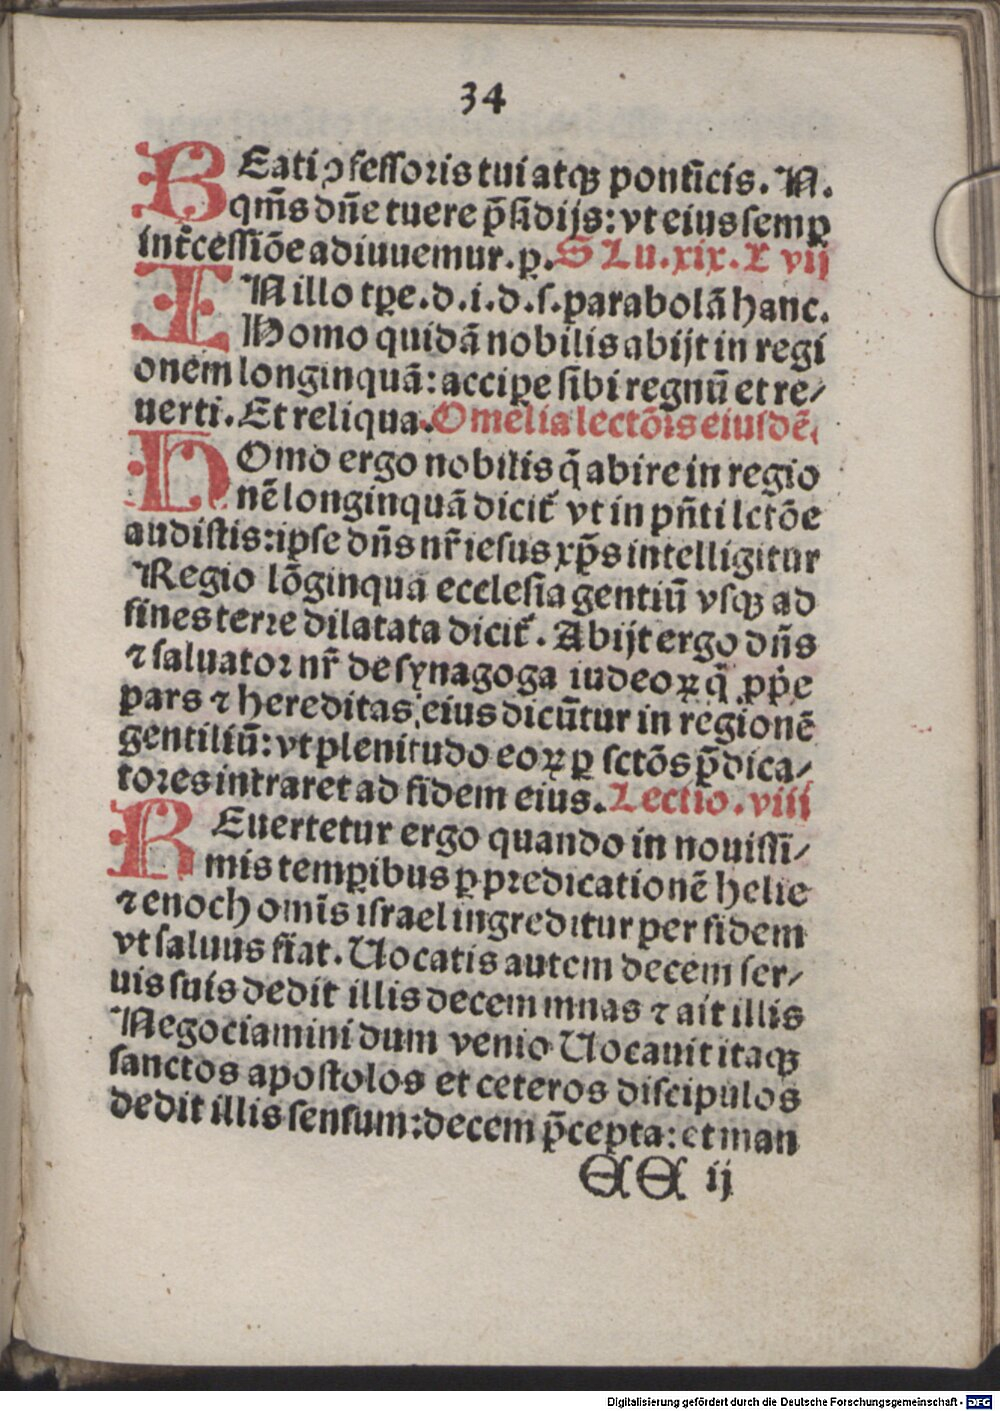 34
BEati ꝯfessoris tui atqꝫ pontificis. N.
qm̄s dn̄e tuere p̄sidijs: vt eius semꝑ
int̄cessiōe adiuuemur. p. S Lu. xix. L vij
IN illo tꝑe. d. i. d. s. parabolā hanc.
Homo quidā nobilis abijt in regi
onem longinquā: accipe sibi regnū et re⸗
uerti. Et reliqua. Omelia lectōis eiusdē.
HOmo ergo nobilis q̄ abire in regio
nē longinquā dicit̄ vt in pn̄ti lctōe
audistis: ipse dn̄s nr̄ iesus xp̄s intelligitur
Regio lōginqua ecclesia gentiū vsqꝫ ad
fines terre dilatata dicit̄. Abijt ergo dn̄s
⁊ saluator nr̄ de synagoga iudeoꝝ q̄ ꝓpe
pars ⁊ hereditas eius dicūtur in regionē
gentiliū: vt plenitudo eoꝝ ꝑ sctōs p̄dica⸗
tores intraret ad fidem eius. Lectio. viij
REuertetur ergo quando in nouissi⸗
mis temꝑibus ꝑ predicationē helie
⁊ enoch om̄is israel ingreditur per fidem
vt saluus fiat. Uocatis autem decem ser⸗
uis suis dedit illis decem mnas ⁊ ait illis
Negociamini dum venio Uocauit itaqꝫ
sanctos apostolos et ceteros discipulos
dedit illis sensum: decem p̄cepta: et man
ij
Digitalisierung gefördert durch die Deutsche Forschungsgemeinschaft - DFG